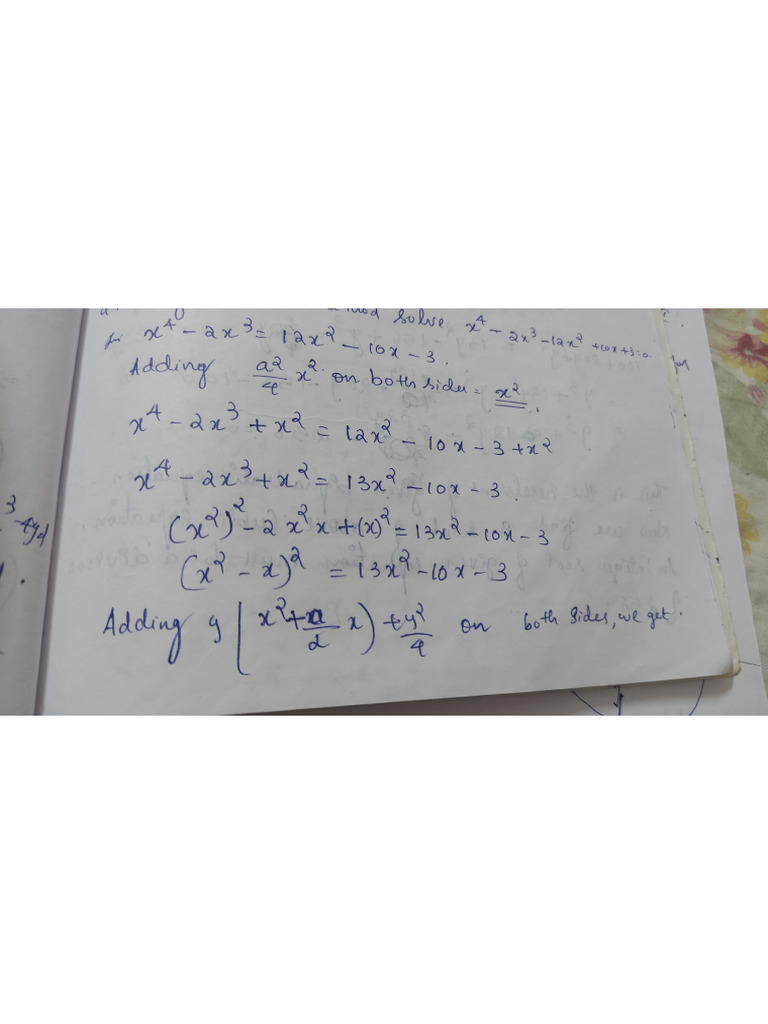 solve x⁴ - 2x³ - 12x² + 10x + 3 = 0.
x⁴ - 2x³ = 12x² - 10x - 3.
Adding a²/4 x² on both sides = x².
x⁴ - 2x³ + x² = 12x² - 10x - 3 + x²
x⁴ - 2x³ + x² = 13x² - 10x - 3.
(x²)² - 2x²x + (x)² = 13x² - 10x - 3
(x² - x)² = 13x² - 10x - 3
Adding y (x² + a/2 x) + y²/4 on both sides, we get.